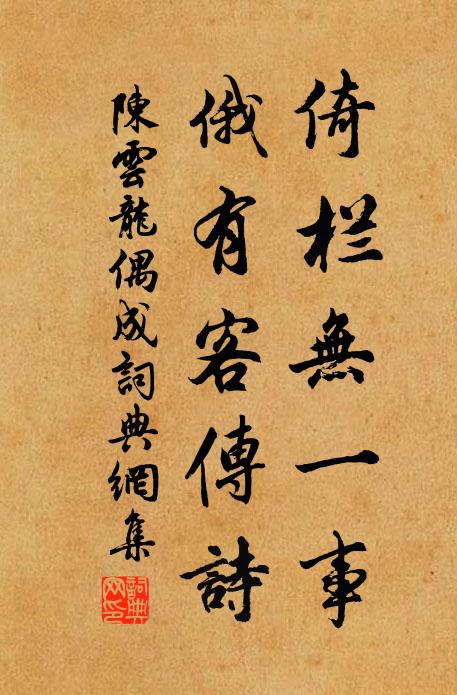 倚栏無一事
俄有客傳詩
陳雲龍偶成詞典網集
詞典网印